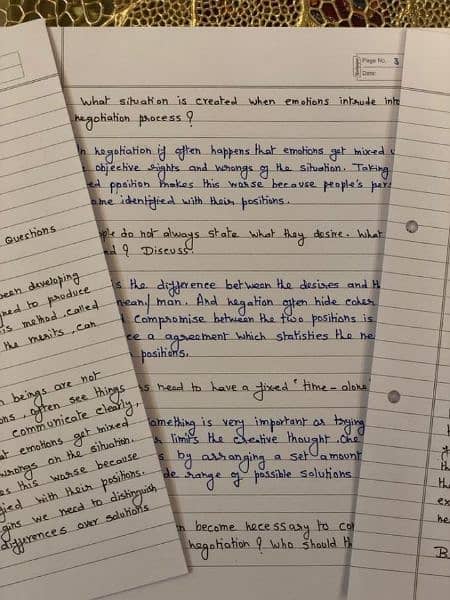 Page No. 3
Date:
What situation is created when emotions intrude into
negotiation process?
In negotiation if often happens that emotions get mixed
objective rights and wrongs of the situation. Taking
position makes this worse because people's
identified with their positions.
do not always state what they desire. What
? Discuss.
the difference between the desires and
mean/man. And negation often hide
compromise between the two positions is
a agreement which statisties the
positions.
need to have a fixed "time - alone
something is very important or trying
limits the creative thought. One
by arranging a set amount
range of possible solutions
become necessary to
negotiation? Who should
Questions
been developing
to produce
method, called
the merits, can
beings are not
often see things
communicate clearly,
emotions get mixed
wrongs on the situation.
this worse because
with their positions.
we need to distinguish
differences over solutions